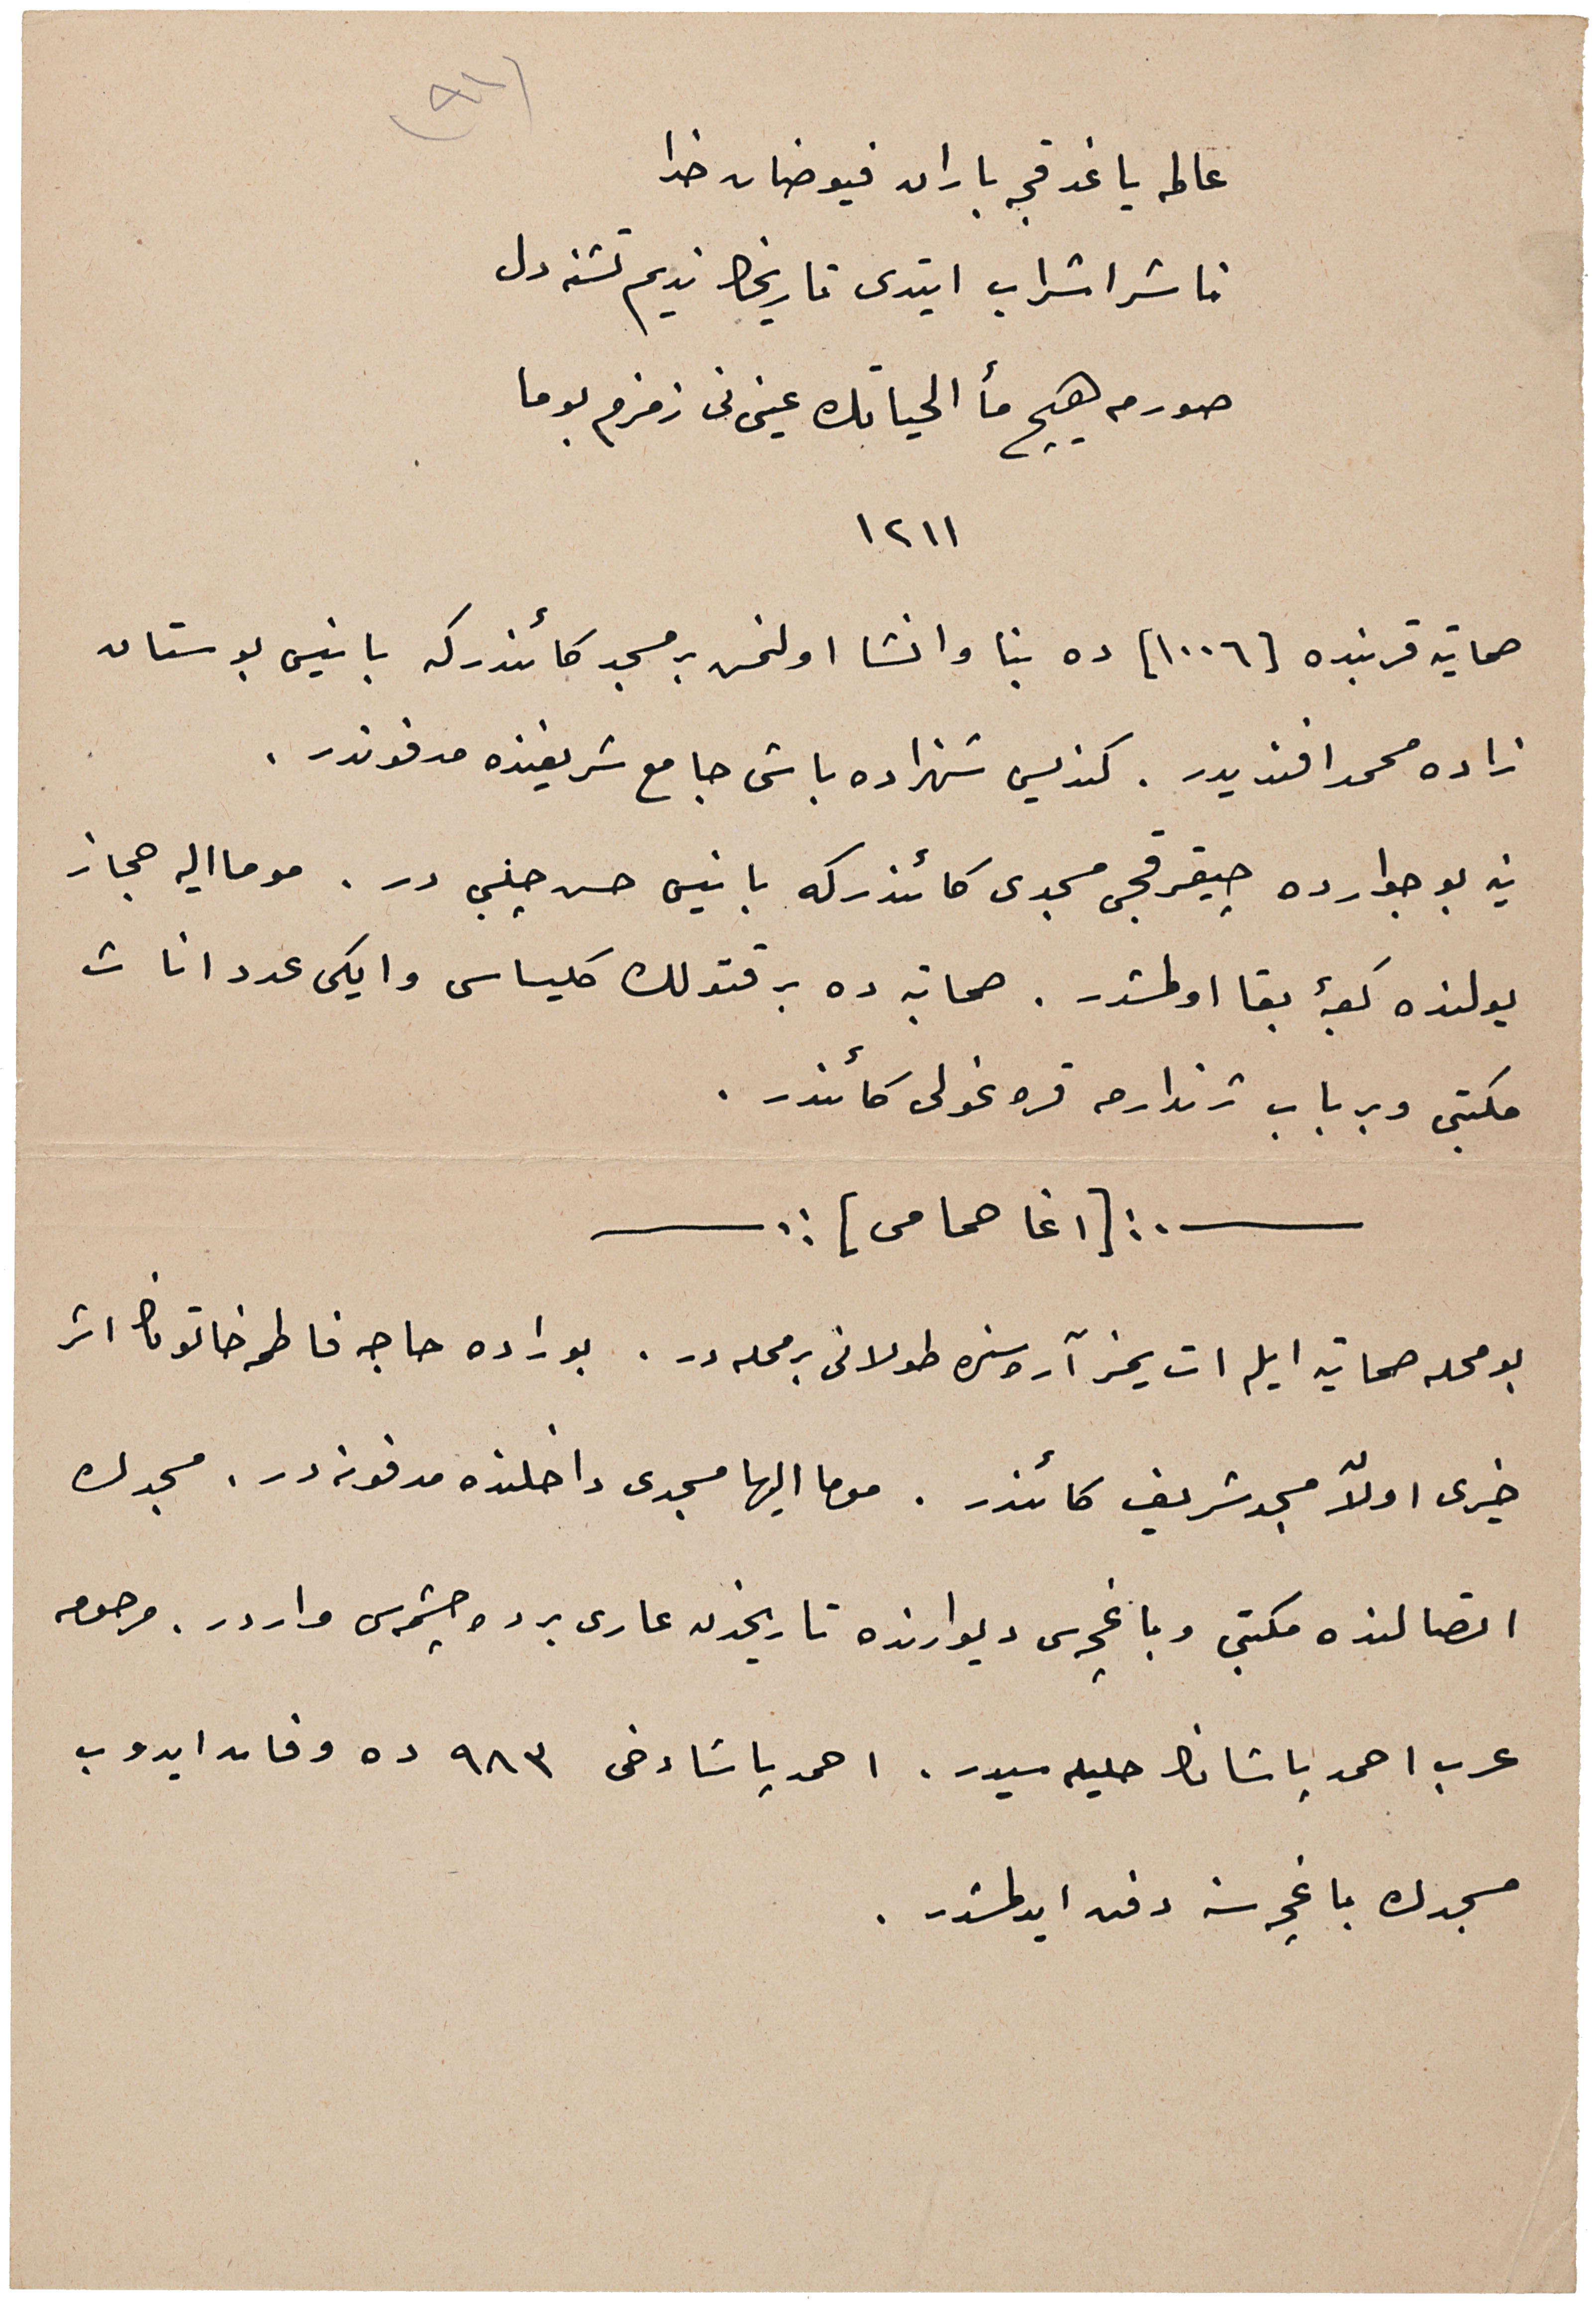 (٩٢)
عالمه ياغدقجه باران فيوضان خدا
ناشر اشراب ايتدى تاريخڭ نديم تشنه دل
صورمه هيچ مأ الحياتك عينى زمزم بوما
١٢١١
صماتيه قربنده [١٠٠٦] ده بنا وانشا اولنمش بر مسجد كائندركه بانيسى بوستان
زاده محمد افنديدر . كنديسى شهزاده باشى جامع شريفنده مدفوندر .
ينه بو جوارده چيقرقجى مسجدى كائندركه بانيسى حسن چلبى در . موما اليه حجاز
يولنده كعبۀ بقا اولمشدر . صماتيه ده بر قتولك كليساسى وايكى عدد اناث
مكتبى وبر باب ژندارمه قره غولى كائندر .
ـــــ .:[اغا حمامى]:. ـــــ
بو محله صماتيه ايله ات يمز آره سنده طولانى بر محله در . بوراده حاجه فاطمه خاتونڭ اثر
خيرى اولاً مسجد شريف كائندر . موما اليها مسجدى داخلنده مدفونه در . مسجدك
اتصالنده مكتبى وباغچه سى ديوارنده تاريخدن عارى بر ده چشمه سى واردر . مرحومه
عرب احمد پاشانڭ حليله سيدر . احمد پاشا دخى ٩٨٣ ده وفات ايدوب
مسجدك باغچه سنه دفن ايدلمشدر .